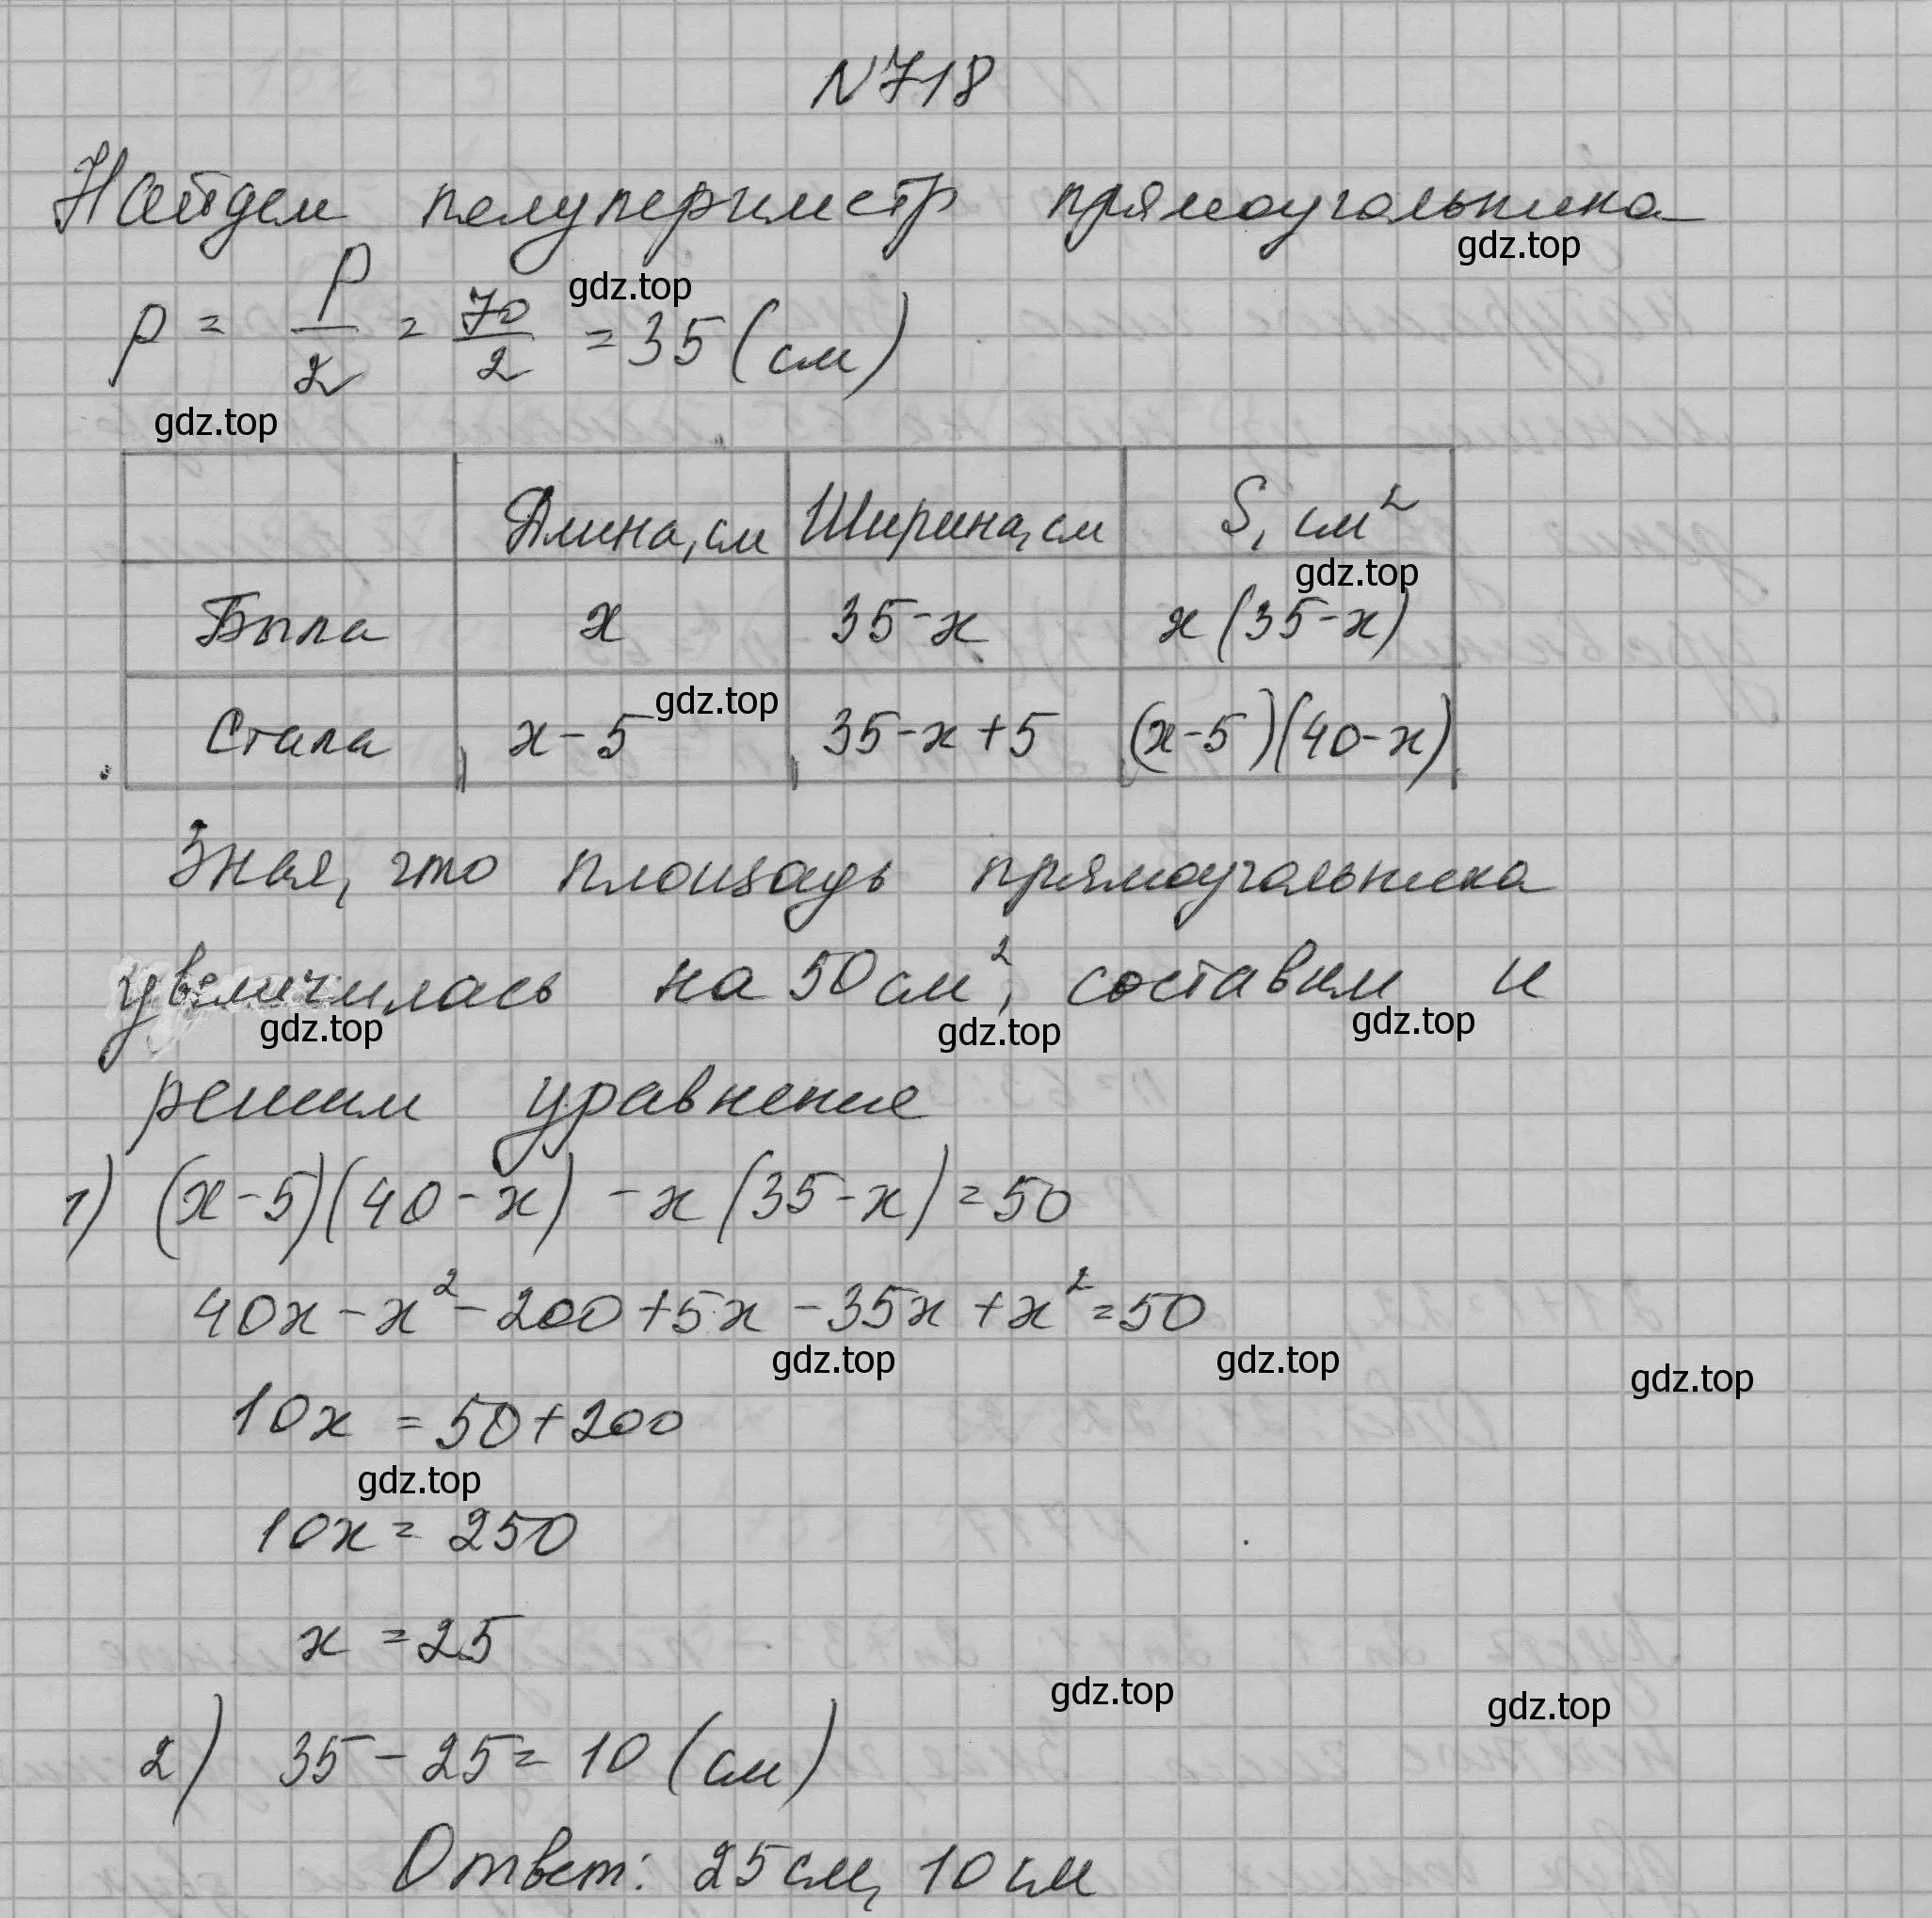 N718
Найдем полупериметр прямоугольника
gdz.top
p = P/2 = 70/2 = 35 (см)
gdz.top
gdz.top
Длина, см Ширина, см S, см²
gdz.top
Была x 35-x x(35-x)
gdz.top
Стала x-5 35-x+5 (x-5)(40-x)
Зная, что площадь прямоугольника
увеличилась на 50 см², составим и
gdz.top gdz.top gdz.top
решим уравнение
1) (x-5)(40-x) - x(35-x) = 50
40x - x² - 200 + 5x - 35x + x² = 50
gdz.top gdz.top gdz.top
10x = 50+200
gdz.top
10x = 250
x = 25
gdz.top gdz.top
2) 35 - 25 = 10 (см)
Ответ: 25 см, 10 см